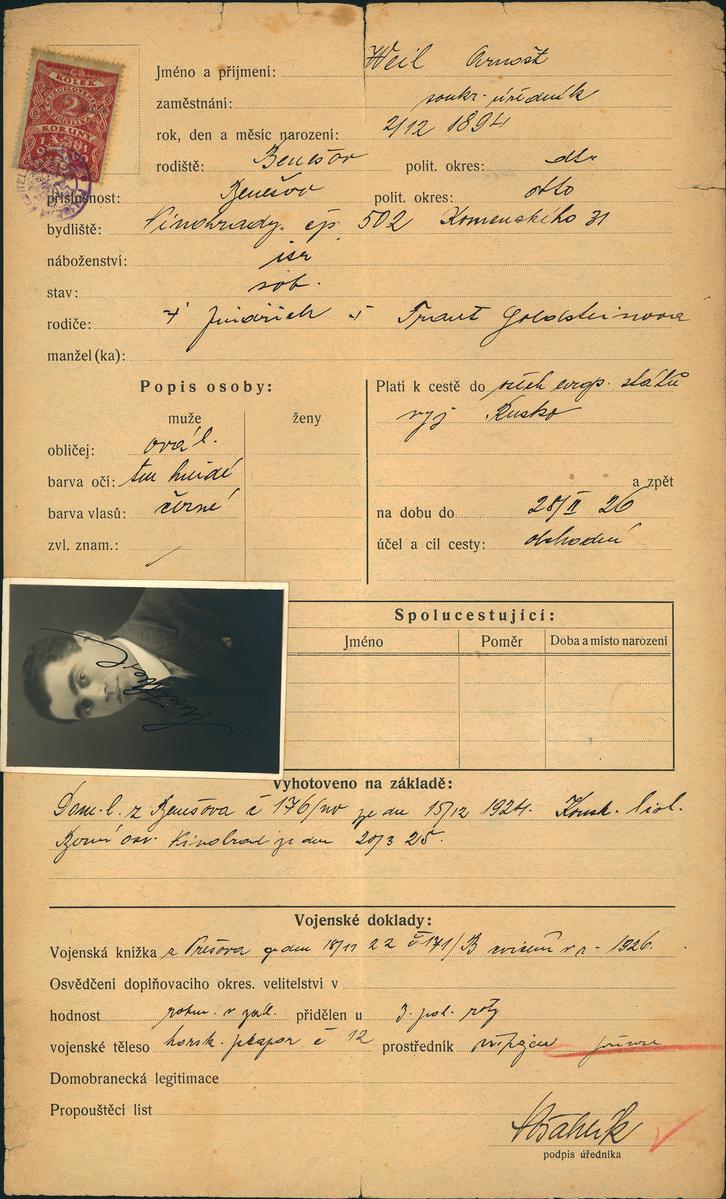 KOLEK
2
KORUNY
Jméno a příjmení: Weil Arnošt
zaměstnání: soukr. úředník
rok, den a měsíc narození: 2/12 1894
rodiště: Benešov polit. okres: dto
příslušnost: Benešov polit. okres: dtto
bydliště: Vinohrady čp. 502 Komenského 31
náboženství: isr
stav: sob.
rodiče: Jindřich Goldsteinová
manžel(ka):
Popis osoby:
muže ženy
obličej: ovál.
barva očí: tm hnědé
barva vlasů: černé
zvl. znam.:
Platí k cestě do všech evrop. států
vyj Rusko
a zpět
na dobu do 28/II 26
účel a cíl cesty: obchodní
Spolucestující:
Jméno Poměr Doba a místo narození
Vyhotoveno na základě:
Dom. l. z Benešova č 176/ ze dne 15/12 1924. Konsk.
Vinohrad ze dne 20/3 25.
Vojenské doklady:
Vojenská knížka z Prešova ze dne 18/11 22 č 171/B v r 1926.
Osvědčení doplňovacího okres. velitelství v
hodnost v přidělen u 3. pol. roty
vojenské těleso horsk. č 12 prostředník
Domobranecká legitimace
Propouštěcí list
podpis úředníka